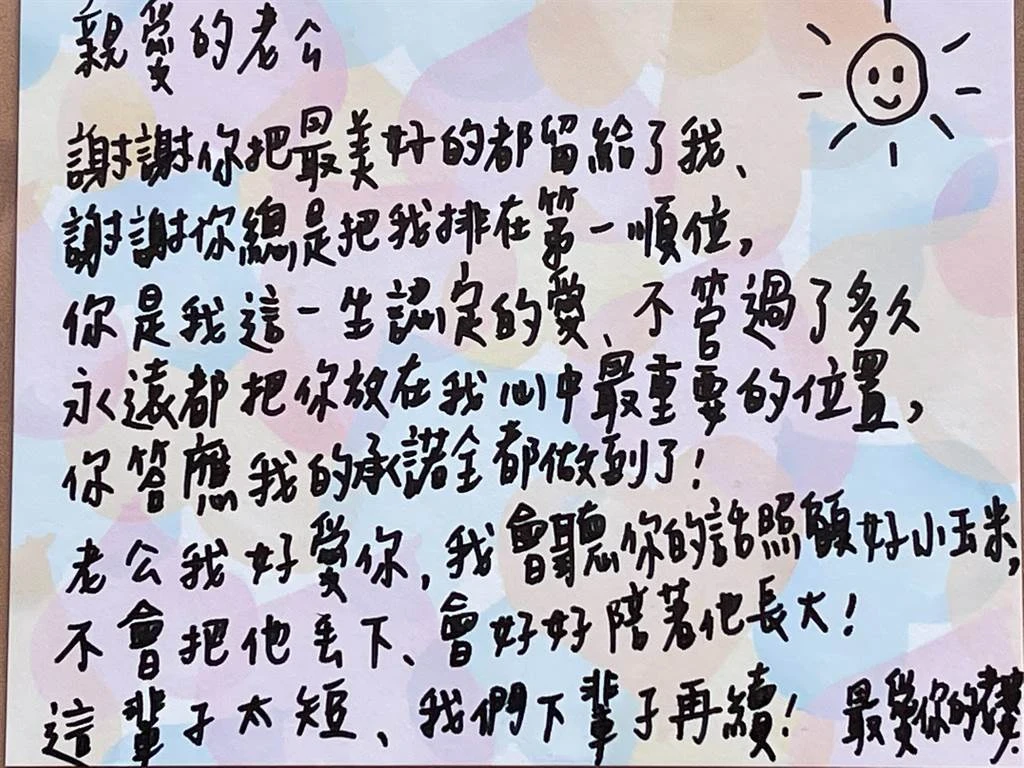 親愛的老公
謝謝你把最美好的都留給了我、
謝謝你總是把我排在第一順位,
你是我這一生認定的愛、不管過了多久
永遠都把你放在我心中最重要的位置,
你答應我的承諾全都做到了!
老公我好愛你,我會聽你的話照顧好小玉米,
不會把他丟下、會好好陪著他長大!
這輩子太短、我們下輩子再續! 最愛你的老婆